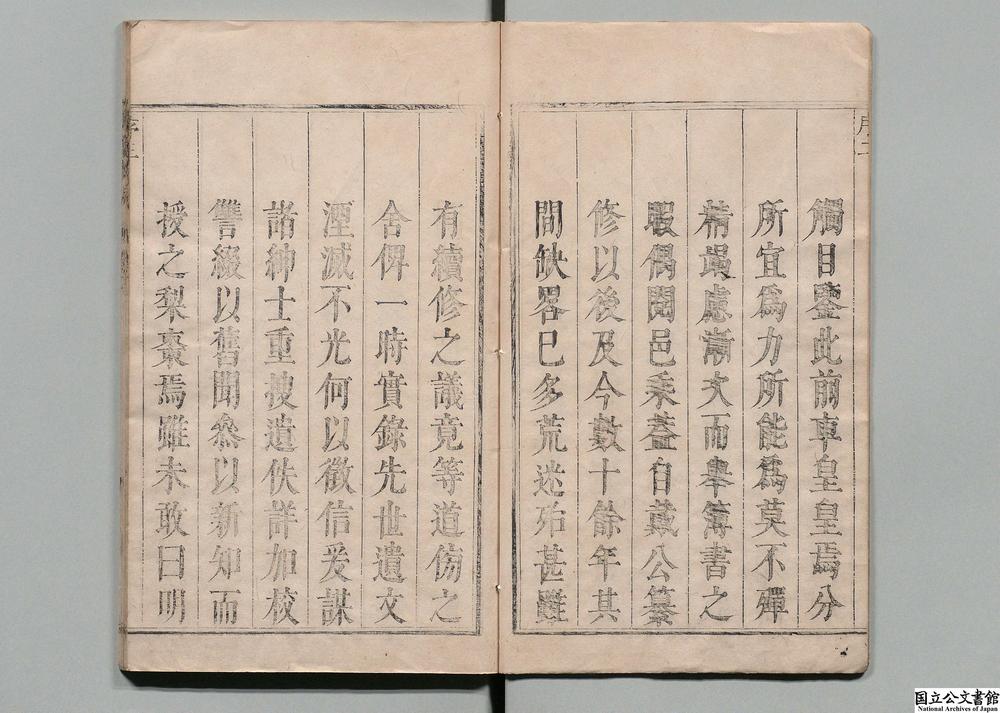 觸目鑒此前車皇皇焉分
所宜爲力所能爲莫不殫
精竭慮漸次而舉簿書之
暇偶閱邑乘葢自戴公纂
修以後及今數十餘年其
間缺畧已多荒迷殆甚雖
有續修之議竟等道傍之
舍俾一時實錄先世遺文
湮滅不光何以徵信爰謀
諸紳士重搜遺佚詳加校
讐綴以舊聞叅以新知而
授之梨棗焉雖未敢曰明
国立公文書館
National Archives of Japan